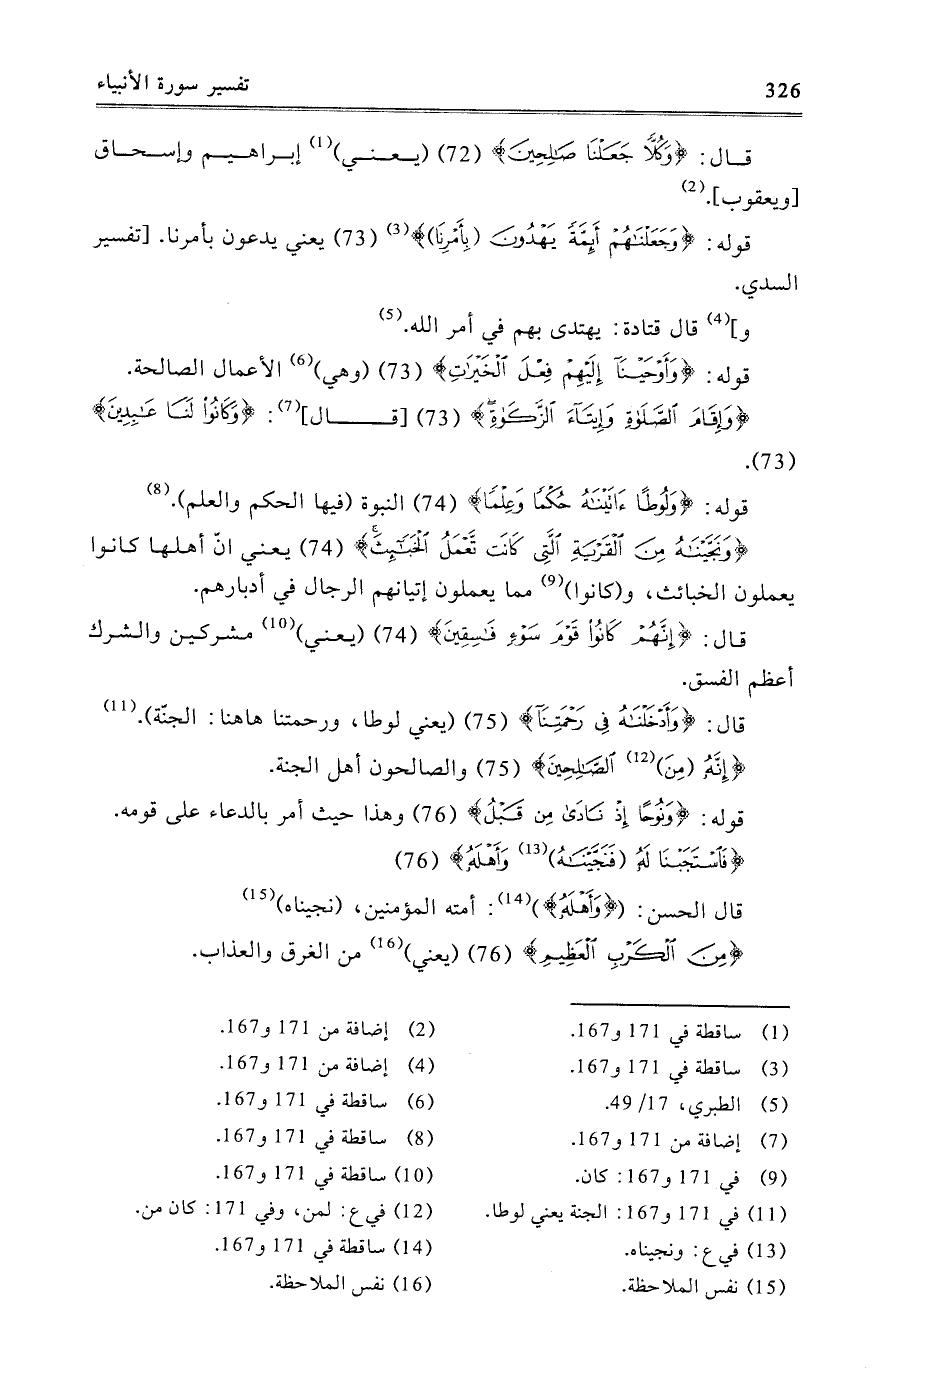 326 تفسير سورة الأنبياء
قال: ﴿وَكُلًّا جَعَلْنَا صَٰلِحِينَ﴾ (72) (يعني)(1) إبراهيم وإسحاق
[ويعقوب].(2)
قوله: ﴿وَجَعَلْنَٰهُمْ أَئِمَّةً يَهْدُونَ (بِأَمْرِنَا)﴾(3) (73) يعني يدعون بأمرنا. [تفسير
السدي.
و](4) قال قتادة: يهتدى بهم في أمر الله.(5)
قوله: ﴿وَأَوْحَيْنَآ إِلَيْهِمْ فِعْلَ ٱلْخَيْرَٰتِ﴾ (73) (وهي)(6) الأعمال الصالحة.
﴿وَإِقَامَ ٱلصَّلَوٰةِ وَإِيتَآءَ ٱلزَّكَوٰةِۖ﴾ (73) [قال](7): ﴿وَكَانُواْ لَنَا عَٰبِدِينَ﴾
(73).
قوله: ﴿وَلُوطًا ءَاتَيْنَٰهُ حُكْمًا وَعِلْمًا﴾ (74) النبوة (فيها الحكم والعلم).(8)
﴿وَنَجَّيْنَٰهُ مِنَ ٱلْقَرْيَةِ ٱلَّتِى كَانَت تَّعْمَلُ ٱلْخَبَٰٓئِثَۚ﴾ (74) يعني انّ أهلها كانوا
يعملون الخبائث، و(كانوا)(9) مما يعملون إتيانهم الرجال في أدبارهم.
قال: ﴿إِنَّهُمْ كَانُواْ قَوْمَ سَوْءٍ فَٰسِقِينَ﴾ (74) (يعني)(10) مشركين والشرك
أعظم الفسق.
قال: ﴿وَأَدْخَلْنَٰهُ فِى رَحْمَتِنَآ﴾ (75) (يعني لوطا، ورحمتنا هاهنا: الجنّة).(11)
﴿إِنَّهُ (مِنَ)(12) ٱلصَّٰلِحِينَ﴾ (75) والصالحون أهل الجنة.
قوله: ﴿وَنُوحًا إِذْ نَادَىٰ مِن قَبْلُ﴾ (76) وهذا حيث أمر بالدعاء على قومه.
﴿فَٱسْتَجَبْنَا لَهُ (فَنَجَّيْنَٰهُ)(13) وَأَهْلَهُ﴾ (76)
قال الحسن: (﴿وَأَهْلَهُ﴾)(14): أمته المؤمنين، (نجيناه)(15)
﴿مِنَ ٱلْكَرْبِ ٱلْعَظِيمِ﴾ (76) (يعني)(16) من الغرق والعذاب.
(1) ساقطة في 171 و167. (2) إضافة من 171 و167.
(3) ساقطة في 171 و167. (4) إضافة من 171 و167.
(5) الطبري، 17/ 49. (6) ساقطة في 171 و167.
(7) إضافة من 171 و167. (8) ساقطة في 171 و167.
(9) في 171 و167: كان. (10) ساقطة في 171 و167.
(11) في 171 و167: الجنة يعني لوطا. (12) في ع: لمن، وفي 171: كان من.
(13) في ع: ونجيناه. (14) ساقطة في 171 و167.
(15) نفس الملاحظة. (16) نفس الملاحظة.